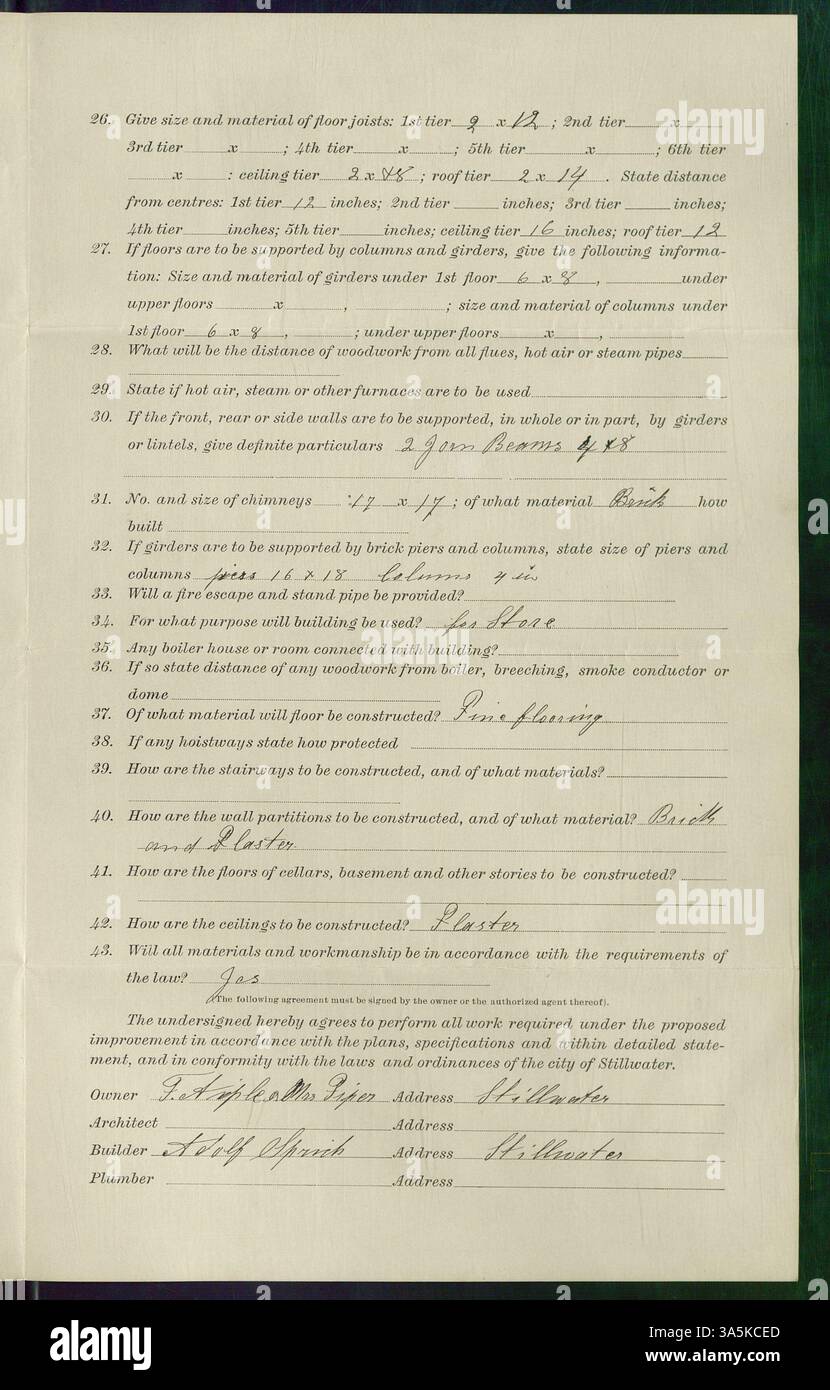 26. Give size and material of floor joists: 1st tier 2 x 12; 2nd tier x
3rd tier x ; 4th tier x ; 5th tier x ; 6th tier
x : ceiling tier 2 x 8; roof tier 2 x 14. State distance
from centres: 1st tier 12 inches; 2nd tier inches; 3rd tier inches;
4th tier inches; 5th tier inches; ceiling tier 16 inches; roof tier 12
27. If floors are to be supported by columns and girders, give the following informa-
tion: Size and material of girders under 1st floor 6 x 8, under
upper floors x , ; size and material of columns under
1st floor 6 x 8, ; under upper floors x ,
28. What will be the distance of woodwork from all flues, hot air or steam pipes
29. State if hot air, steam or other furnaces are to be used
30. If the front, rear or side walls are to be supported, in whole or in part, by girders
or lintels, give definite particulars 2 Jorn Beams 4 x 8
31. No. and size of chimneys 17 x 17; of what material Brick how
built
32. If girders are to be supported by brick piers and columns, state size of piers and
columns piers 16 x 18 Colums 4 in
33. Will a fire escape and stand pipe be provided?
34. For what purpose will building be used? for Store
35. Any boiler house or room connected with building?
36. If so state distance of any woodwork from boiler, breeching, smoke conductor or
dome
37. Of what material will floor be constructed? Pine flooring
38. If any hoistways state how protected
39. How are the stairways to be constructed, and of what materials?
40. How are the wall partitions to be constructed, and of what material? Brick
and Plaster
41. How are the floors of cellars, basement and other stories to be constructed?
42. How are the ceilings to be constructed? Plaster
43. Will all materials and workmanship be in accordance with the requirements of
the law? Jes
(The following agreement must be signed by the owner or the authorized agent thereof).
The undersigned hereby agrees to perform all work required under the proposed
improvement in accordance with the plans, specifications and within detailed state-
ment, and in conformity with the laws and ordinances of the city of Stillwater.
Owner F. Aiple Mrs Piper Address Stillwater
Architect Address
Builder Adolf Address Stillwater
Plumber Address
alamy
Image ID: 3A5KCED
www.alamy.com